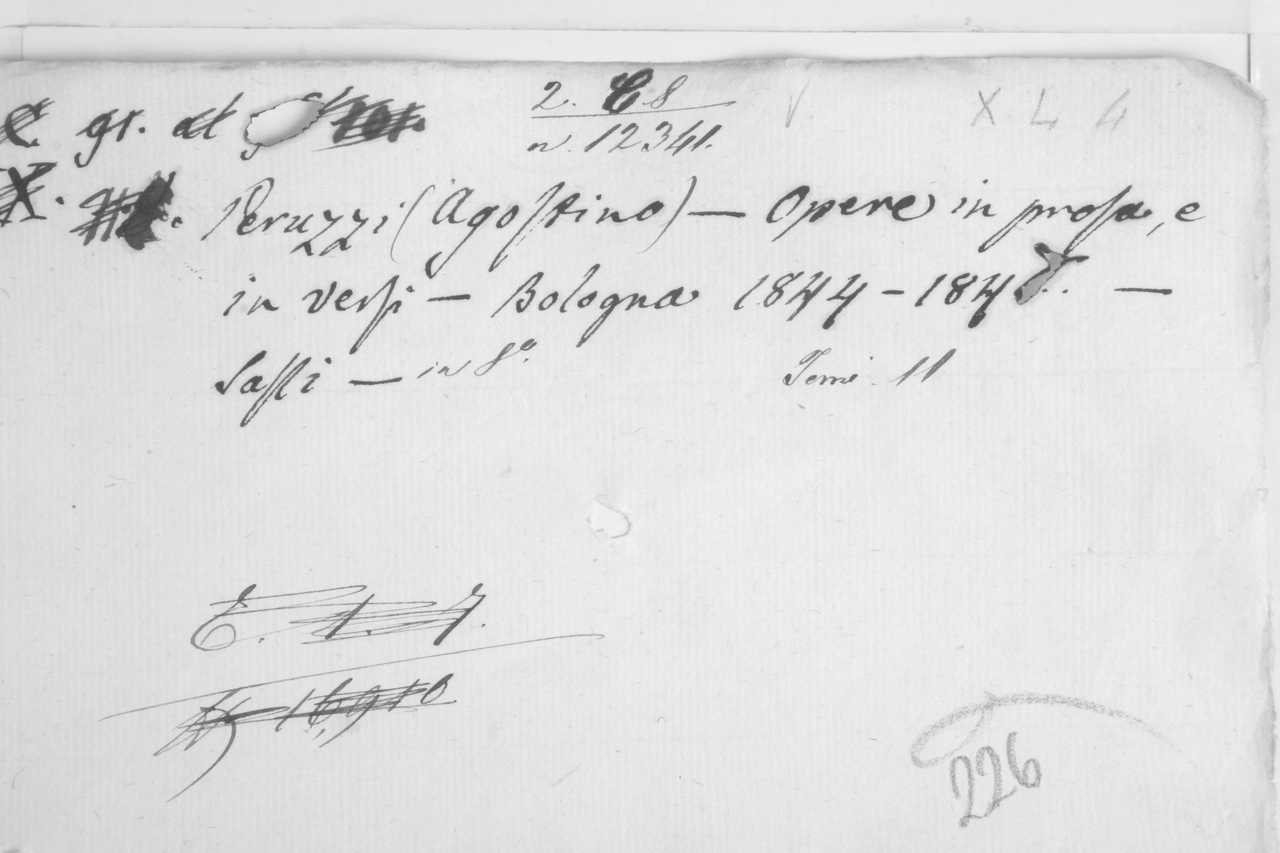 2. C 8
V. X L 4
gr. at
n. 12341.
X. Peruzzi (Agoſtino) — Opere in proſa, e
in verſi — Bologna 1844 – 184 —
Saſſi — in 8º Tomi 11
E. 1. 7.
16910
226